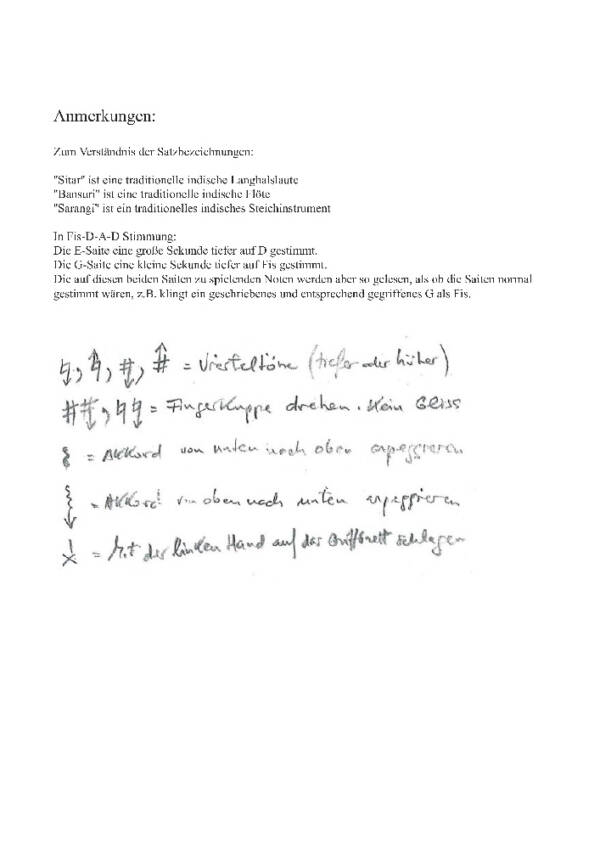 Anmerkungen:
Zum Verständnis der Satzbezeichnungen:
"Sitar" ist eine traditionelle indische Langhalslaute
"Bansuri" ist eine traditionelle indische Flöte
"Sarangi" ist ein traditionelles indisches Steichinstrument
In Fis-D-A-D Stimmung:
Die E-Saite eine große Sekunde tiefer auf D gestimmt.
Die G-Saite eine kleine Sekunde tiefer auf Fis gestimmt.
Die auf diesen beiden Saiten zu spielenden Noten werden aber so gelesen, als ob die Saiten normal
gestimmt wären, z.B. klingt ein geschriebenes und entsprechend gegriffenes G als Fis.
= Vierteltöne (tiefer oder höher)
= Fingerkuppe drehen. Kein Gliss
= Akkord von unten nach oben arpeggieren
= Akkord von oben nach unten arpeggieren
= Mit der linken Hand auf das Griffbrett schlagen